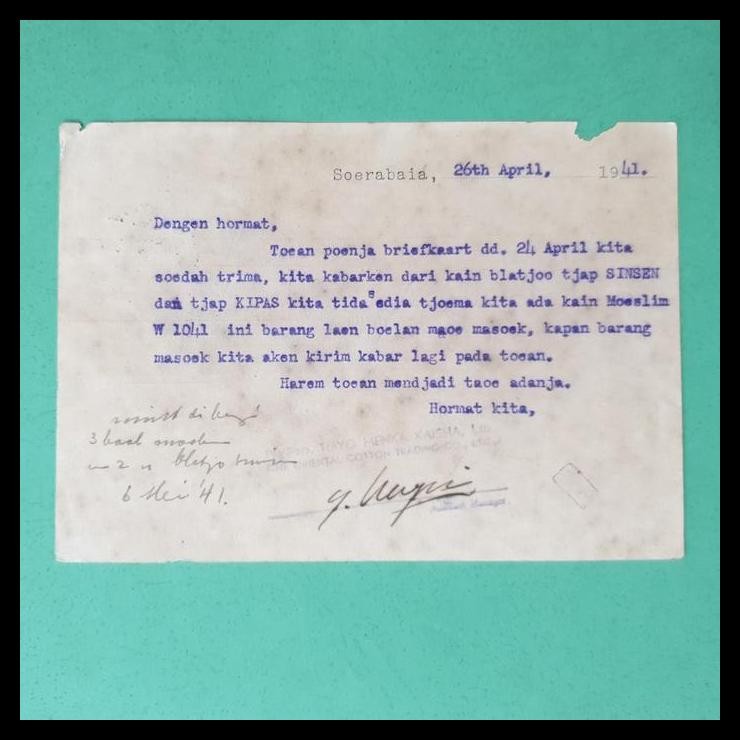 Soerabaia, 26th April, 1941.
Dengen hormat,
Toean poenja briefkaart dd. 24 April kita
soedah trima, kita kabarken dari kain blatjoo tjap SINSEN
dan tjap KIPAS kita tida sedia tjoema kita ada kain Moeslim
W 1041 ini barang laen boelan maoe masoek, kapan barang
masoek kita aken kirim kabar lagi pada toean.
Harem toean mendjadi taoe adanja.
Hormat kita,
3
2
6 Mei '41.
TOYO MENKA KAISHA, Ltd.
COTTON TRADING CO.,